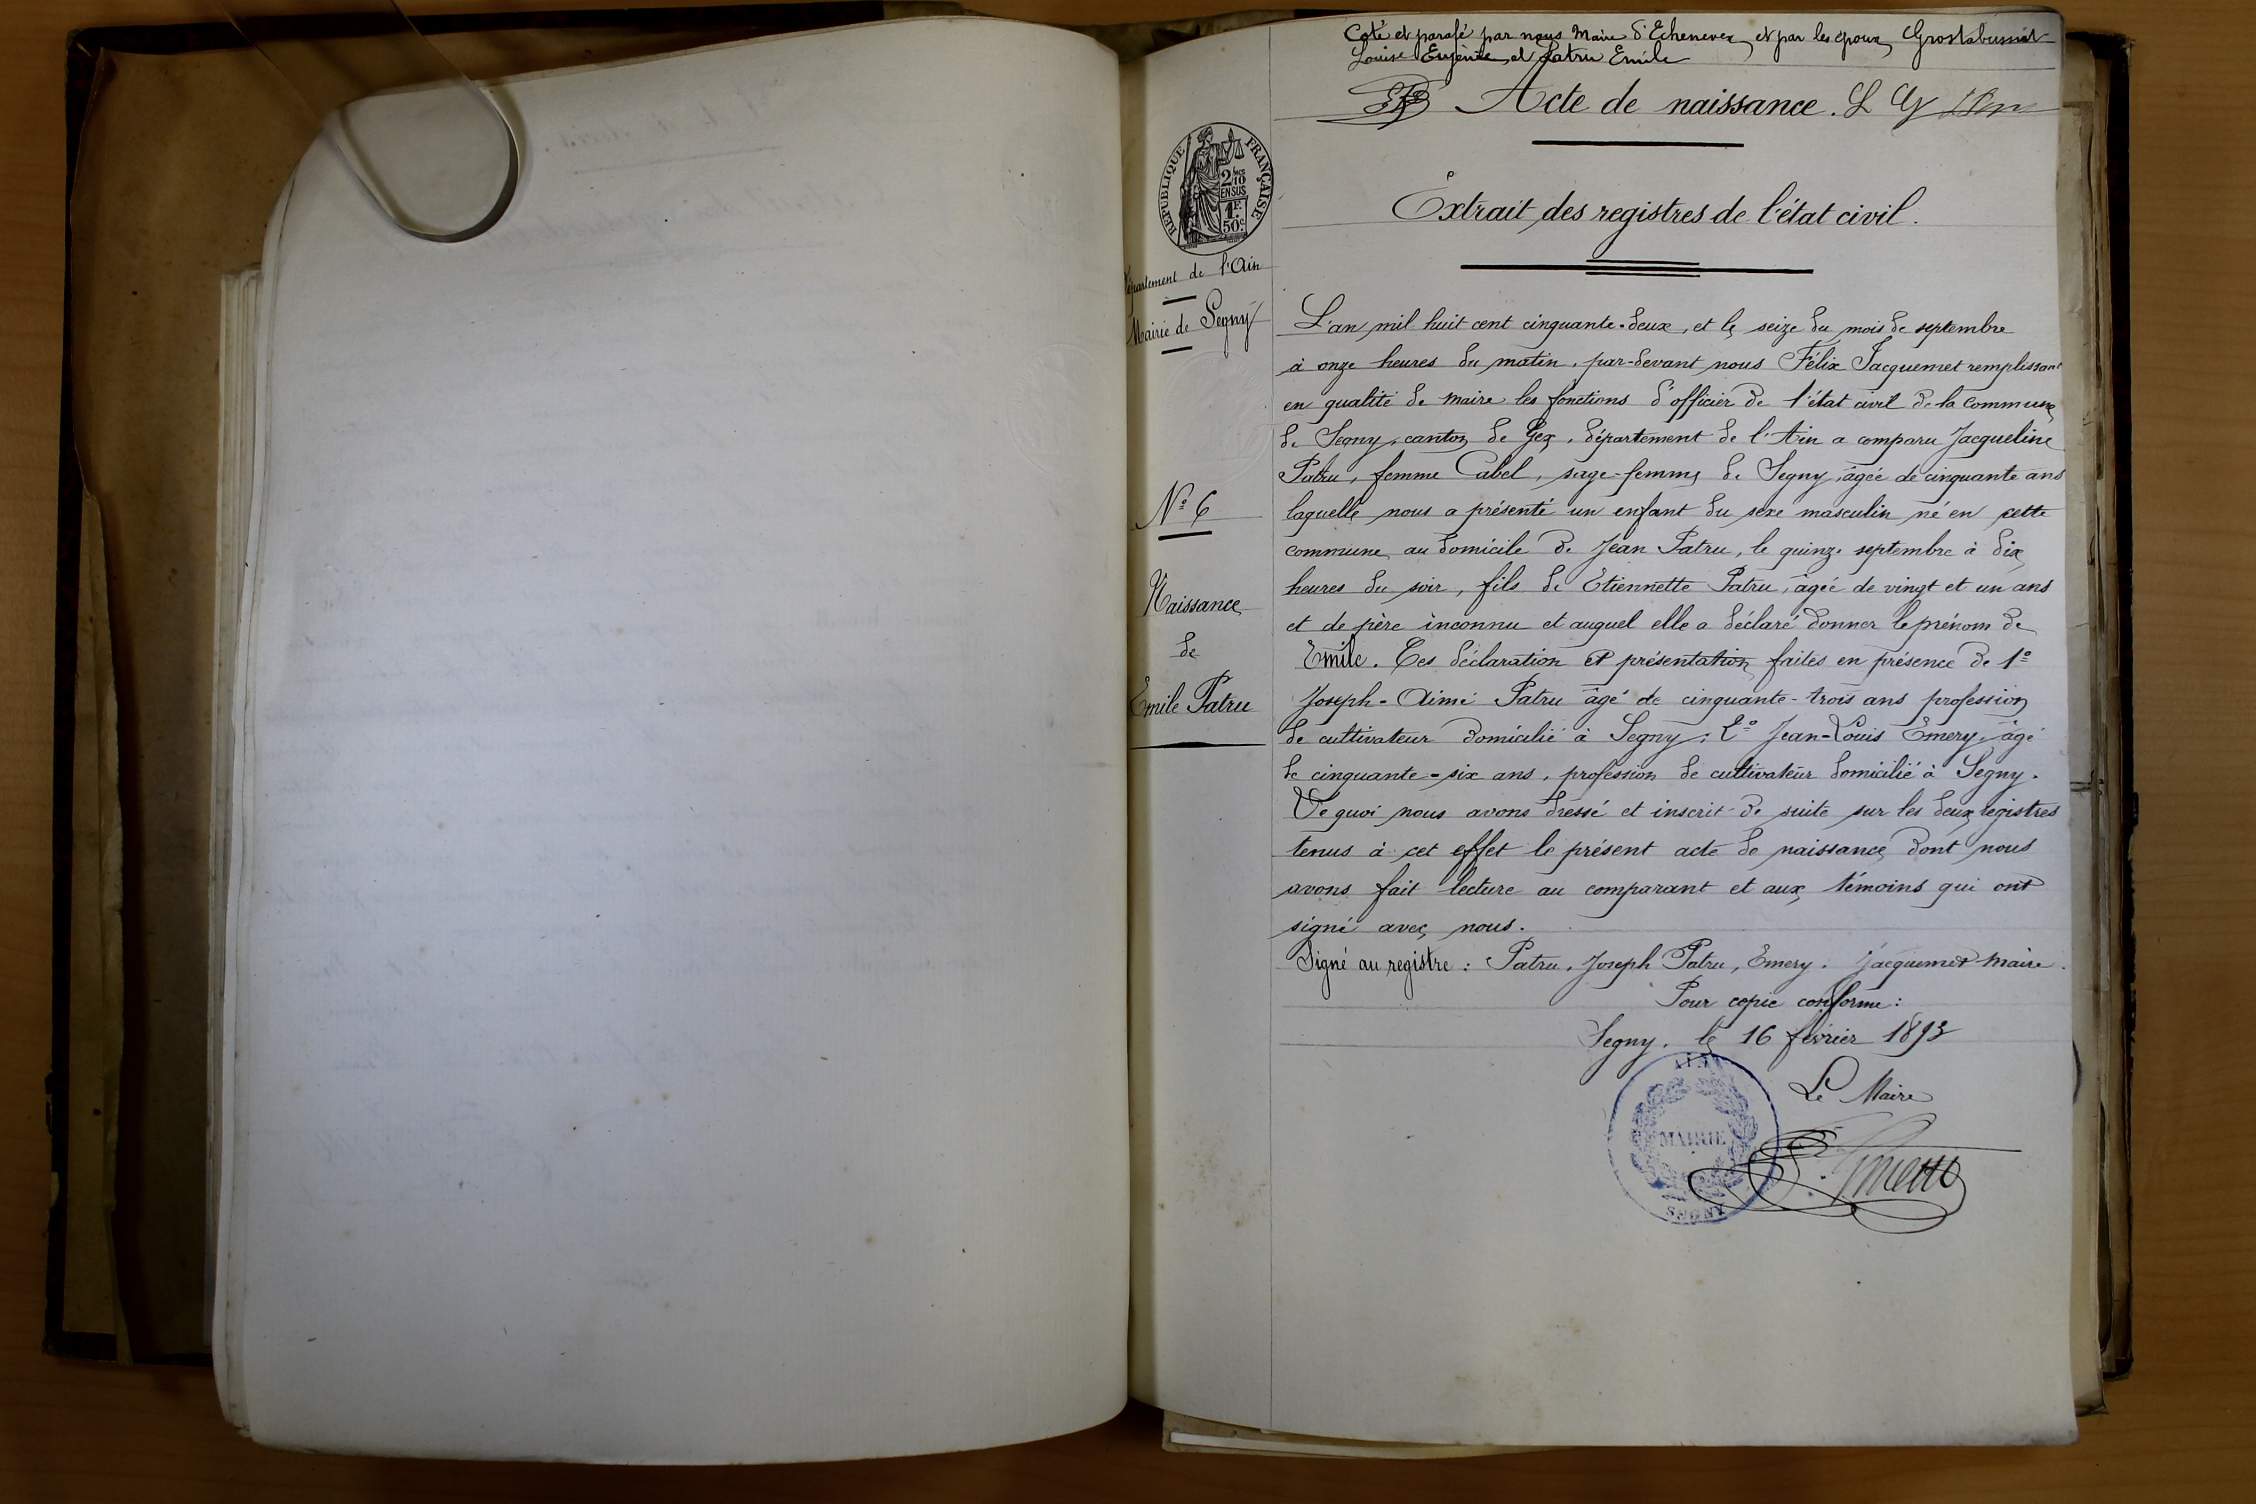 Coté et parafé par nous Maire d'Echenevex et par les époux Grostabussiat
Louise Eugénie et Patru Emile
Acte de naissance.
RÉPUBLIQUE FRANÇAISE
2/10
EN SUS
1F.
50c
Extrait des registres de l'état civil.
Département de l'Ain
Mairie de Segny
N° 6
Naissance
de
Emile Patru
L'an mil huit cent cinquante-deux, et le seize du mois de septembre
à onze heures du matin, par-devant nous Félix Jacquemet remplissant
en qualité de maire les fonctions d'officier de l'état civil de la commune
de Segny, canton de Gex, département de l'Ain a comparu Jacqueline
Patru, femme Cabel, sage-femme de Segny, âgée de cinquante ans
laquelle nous a présenté un enfant du sexe masculin né en cette
commune au domicile de Jean Patru, le quinze septembre à dix
heures du soir, fils de Etiennette Patru, âgée de vingt et un ans
et de père inconnu et auquel elle a déclaré donner le prénom de
Emile. Ces déclaration et présentation faites en présence de 1°
Joseph-Aimé Patru âgé de cinquante-trois ans profession
de cultivateur domicilié à Segny; 2° Jean-Louis Emery, âgé
de cinquante-six ans, profession de cultivateur domicilié à Segny.
De quoi nous avons dressé et inscrit de suite sur les deux registres
tenus à cet effet le présent acte de naissance dont nous
avons fait lecture au comparant et aux témoins qui ont
signé avec nous.
Signé au registre : Patru, Joseph Patru, Emery. Jacquemet maire.
Pour copie conforme :
Segny, le 16 février 1893
Le Maire
AIN
MAIRIE
SEGNY